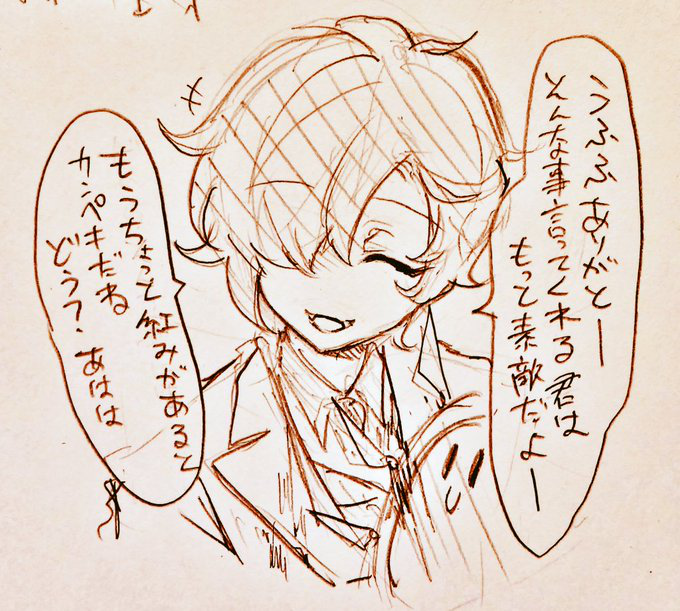 うふふありがとー
そんな事言ってくれる君は
もっと素敵だよー
もうちょっと紅みがあると
カンペキだね
どう?あはは